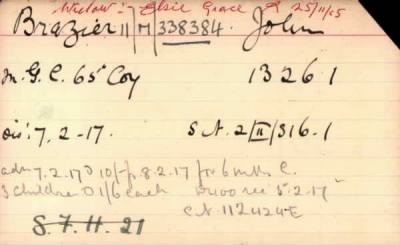 Widow: Elsie Grace 25/11/15
Brazier 11/M/338384. John
M.G.C. 65 Coy 13261
dis: 7.2-17. S.A. 2/II/316.1
adm 7.2.17 D 10/- fr 8.2.17 for 6 mths C.
3 children D 1/6 each 5.2.17
C.A. 112424E
S. 7. 11. 21